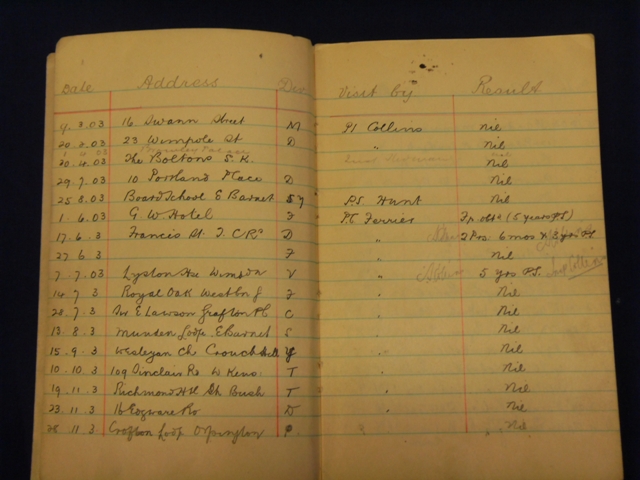 Date Address Div Visit by Result
9.3.03 16 Swann Street M PI Collins nil
20.3.03 23 Wimpole St D " nil
20.4.03 The Boltons S.K. nil
29.7.03 10 Portland Place D Nil
25.8.03 Board School E Barnet PS Hunt nil
1.6.03 G W Hotel F PC Ferrier (5 years PS)
17.6.3 Francis St T.C.Rd D " 2 Pos. 6 mos & 3 yrs PS
27.6.3 F " Nil
7.7.03 Lyston Hse Wimbdn V " 5 yrs P.S.
14.7.3 Royal Oak Westbn G F " Nil
28.7.3 E Lawson Grafton Pl C " Nil
13.8.3 Munden E Barnet S " Nil
15.9.3 Wesleyan Ch Crouch Hill Y " Nil
10.10.3 109 Sinclair Rd W Kens T " Nil
19.11.3 Richmond Hl Sh Bush T " Nil
23.11.3 16 Edgware Rd D " Nil
28.11.3 Crofton Orpington P " Nil